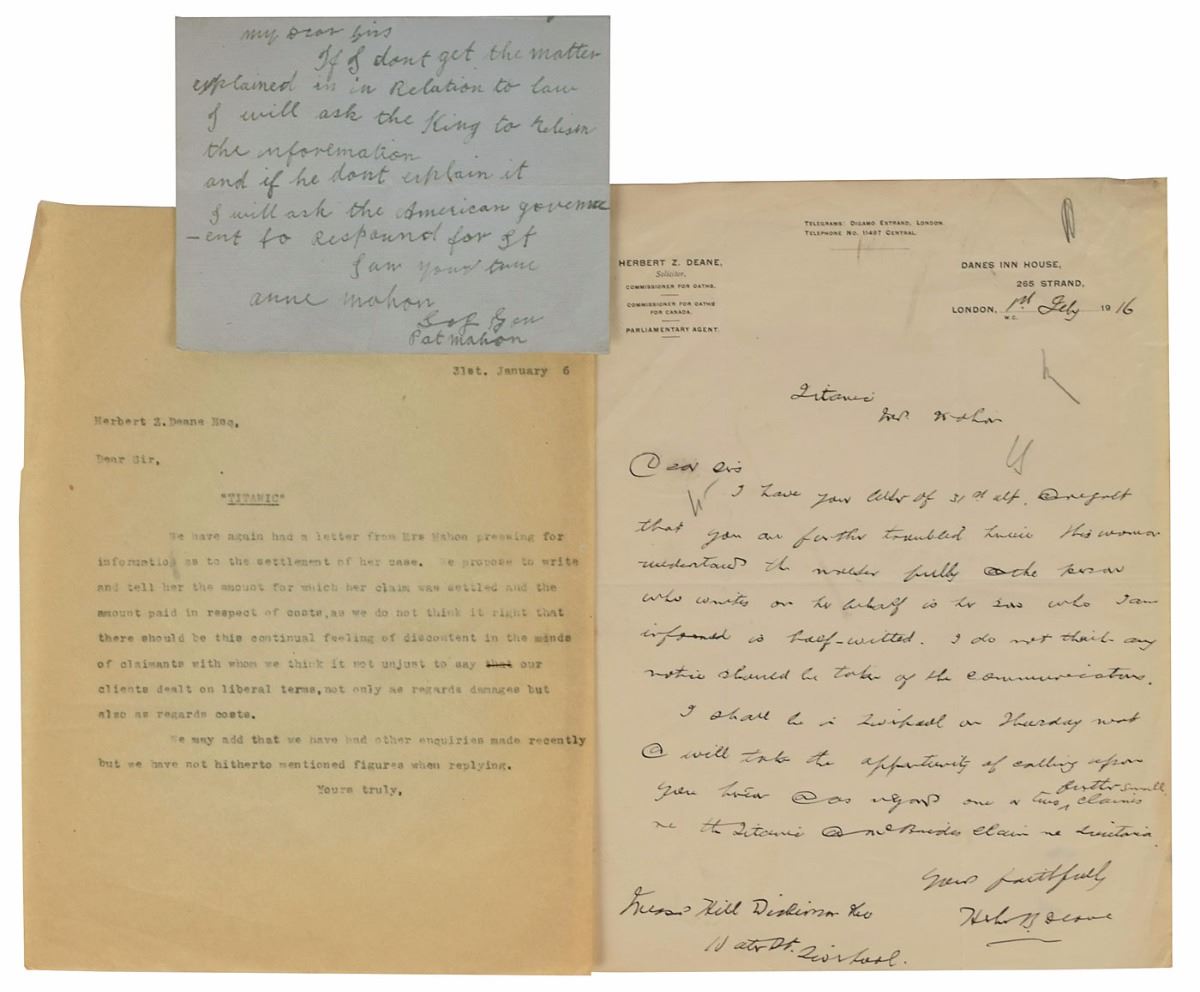 my Dear Sirs
If I dont get the matter
explained in in Relation to law
I will ask the King to
the information
and if he dont explain it
I will ask the American governme
-ent to Respound for It
I am your true
anne mahon
Pat mahon
31st. January 6
Herbert Z.Deane Esq.
Dear Sir,
"TITANIC"
We have again had a letter from Mrs Mahon pressing for
information as to the settlement of her case. We propose to write
and tell her the amount for which her claim was settled and the
amount paid in respect of costs,as we do not think it right that
there should be this continual feeling of discontent in the minds
of claimants with whom we think it not unjust to say that our
clients dealt on liberal terms,not only as regards damages but
also as regards costs.
We may add that we have had other enquiries made recently
but we have not hitherto mentioned figures when replying.
Yours truly,
TELEGRAMS: DIGAMO ESTRAND, LONDON.
TELEPHONE NO. 11487 CENTRAL.
HERBERT Z. DEANE,
Solicitor,
COMMISSIONER FOR OATHS.
COMMISSIONER FOR OATHS
FOR CANADA.
PARLIAMENTARY AGENT.
DANES INN HOUSE,
265 STRAND,
LONDON, W.C. 1st Feby 1916
Titanic
Mrs. Mahon
Dear Sirs
I have your letter of 31st ult. & regret
that you are further troubled herein This woman
understands the matter fully & the person
who writes on her behalf is her son who I am
informed is half-witted. I do not think any
notice should be taken of the communications.
I shall be in Liverpool on Thursday next
& will take the opportunity of calling upon
you herein & as regards one or two further small claims
re the Titanic & McBrides claim re Lusitania.
Yours faithfully
Herbt Z Deane
Messrs Hill Dickinson & Co
Water St. Liverpool.